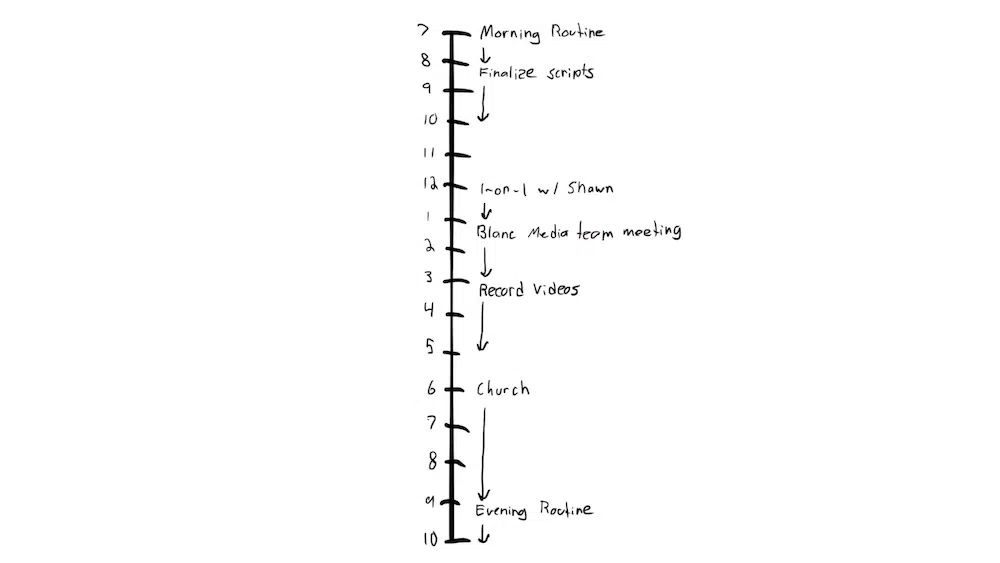 7 Morning Routine
8
Finalize scripts
9
10
11
12 1-on-1 w/ Shawn
1
Blanc Media team meeting
2
3
Record Videos
4
5
6 Church
7
8
9
Evening Routine
10